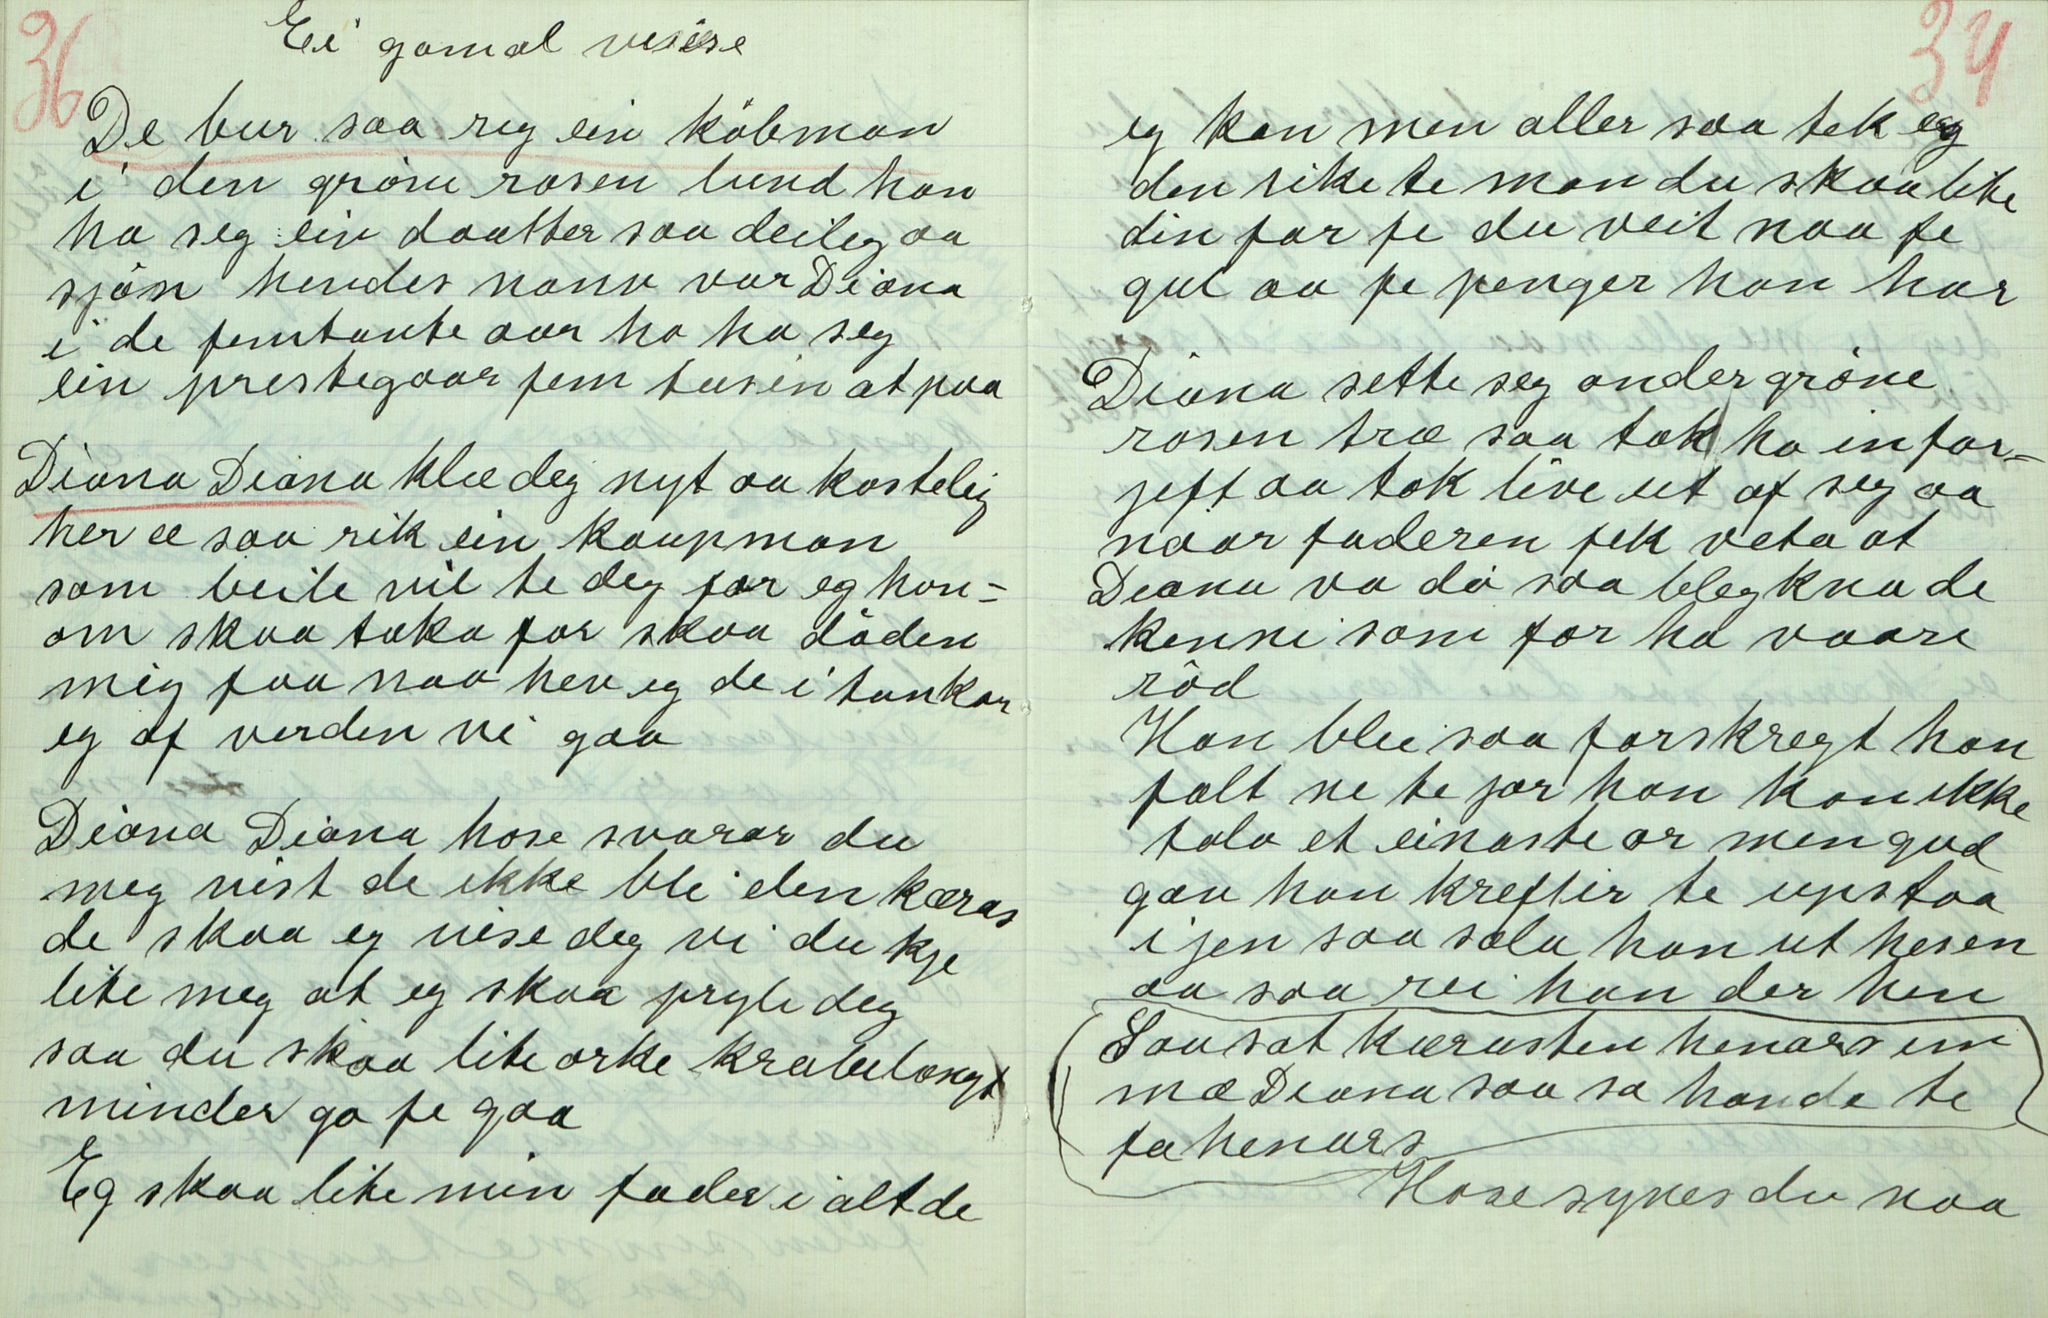 36
Ei gamal viise
De bur saa rig ein köbman
i den gröne rosen lund han
ha seg ein daatter saa deileg aa
sjöin hendes nann var Diana
i de femtante aar ho ha seg
ein prestegaar fem tusin at paa
Diana Diana klæ deg nyt aa kosteleg
her ee saa rik ein kaupman
som beile vil te deg for eg hon=
om skaa taka för skaa döden
mig faa naa hev eg de i tankar
eg af verden vi gaa
Diana Diana hose svarar du
meg vist de ikke bli den kæras
de skaa eg vise deg vi du kje
lite meg at eg skaa pryle deg
saa du skaa lite orke
minder ga fe gaa
Eg skaa lite min fader i alt de
34
eg kan men aller saa tek eg
den rike te man du skaa lite
din far fe du veit naa fe
gul aa fe penger han har
Diana sette seg onder gröne
rosen træ saa tok ho in for=
jeft aa tok live ut af seg aa
naar faderen fek veta at
Diana va dö saa blegkna de
kenne som for ha vaare
röd
Han blei saa forskregt han
falt ne te jor han kon ikke
tala et einaste or men gud
gav han krefter te upstaa
i jen saa sala han ut hesen
aa saa rei han der hen
Saa sat kærasten henars in
mæ Diana saa sa han de te
fa henars
Hose synes du naa